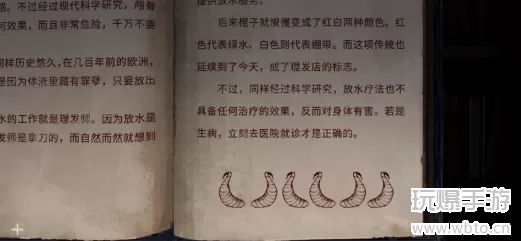 感。不过经过现代科学研究，颅骨
何效果，而且非常危险，千万不要
同样历史悠久，在几百年前的欧洲，
是因为体液里藏有罪孽，只要放出
水的工作就是理发师。因为放水是
发师是拿刀的，而自然而然就想到
提供放水服务。
后来棍子就慢慢变成了红白两种颜色。红
色代表绿水、白色则代表绷带。而这项传统也
延续到了今天，成了理发店的标志。
不过，同样经过科学研究，放水疗法也不
具备任何治疗的效果，反而对身体有害。若是
生病，立刻去医院就诊才是正确的。
玩爆手游
www.wbto.cn